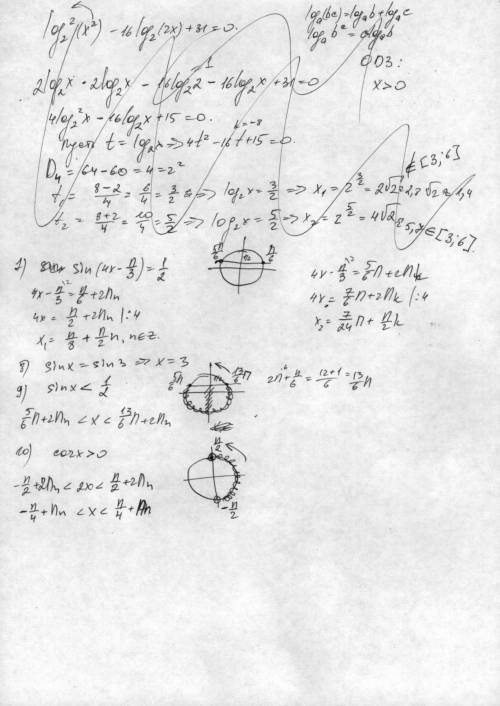 log₂²(x²) - 16log₂(2x) + 31 = 0.
logₐ(bc) = logₐb + logₐc
logₐbᶜ = c logₐb
ОДЗ:
x > 0
2log₂x · 2log₂x - 16log₂2 - 16log₂x + 31 = 0
1
4log₂²x - 16log₂x + 15 = 0.
k = -8
пусть t = log₂x => 4t² - 16t + 15 = 0.
D₄ = 64 - 60 = 4 = 2²
t₁ = (8-2)/4 = 6/4 = 3/2 => log₂x = 3/2 => x₁ = 2^(3/2) = 2√2 ∉ [3;6]
√2 ≈ 1,4
t₂ = (8+2)/4 = 10/4 = 5/2 => log₂x = 5/2 => x₂ = 2^(5/2) = 4√2 ≈ 5,7 ∈ [3;6].
7) sin(4x - π/3) = 1/2
5π/6 π/6
4x - π/3 = π/6 + 2πn
4x = π/2 + 2πn |:4
x₁ = π/8 + π/2 n, n∈Z.
4x - π/3 = 5/6 π + 2πk
4x = 7/6 π + 2πk |:4
x₂ = 7/24 π + π/2 k
8) sin x = sin 3 => x = 3
9) sin x < 1/2
5/6 π 13/6 π
2π + π/6 = (12+1)/6 = 13/6 π
5/6 π + 2πn < x < 13/6 π + 2πn
10) cos2x > 0
π/2
-π/2 + 2πn < 2x < π/2 + 2πn
-π/4 + πn < x < π/4 + πn
-π/2